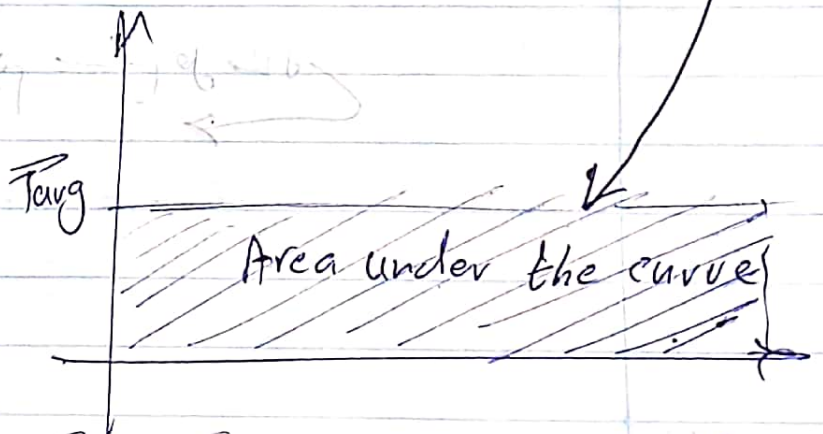 Favg
Area under the curve